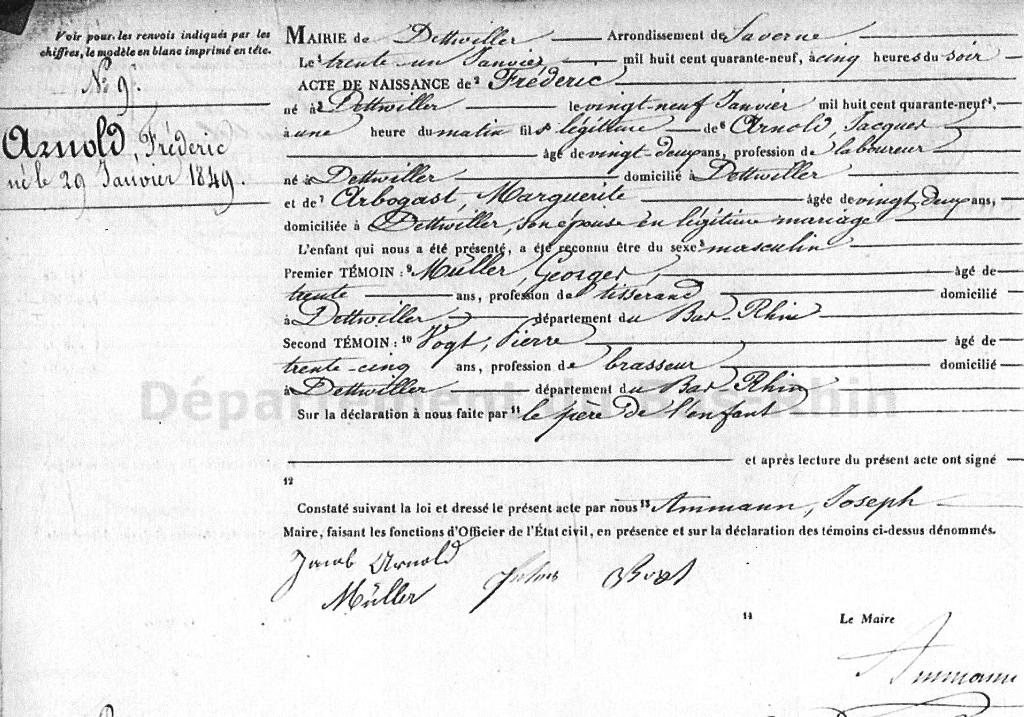 Voir pour les renvois indiqués par les
chiffres, le modèle en blanc imprimé en tête.
No. 9.
Arnold, Fréderic
né le 29 Janvier 1849.
MAIRIE de Dettwiller Arrondissement de Saverne
Le trente-un Janvier mil huit cent quarante-neuf, à cinq heures du soir
ACTE DE NAISSANCE de 2 Fréderic
né à 3 Dettwiller le vingt-neuf Janvier mil huit cent quarante-neuf,
à une heure du matin fils légitime de 6 Arnold, Jacques
âgé de vingt-deux ans, profession de laboureur
né à Dettwiller domicilié à Dettwiller
et de 7 Arbogast, Marguerite âgée de vingt-deux ans,
domiciliée à Dettwiller, son épouse en légitime mariage
L'enfant qui nous a été présenté, a été reconnu être du sexe 8 masculin
Premier TÉMOIN : 9 Müller, Georges, âgé de
trente ans, profession de tisserand domicilié
à Dettwiller département du Bas-Rhin
Second TÉMOIN : 10 Vogt, Pierre âgé de
trente-cinq ans, profession de brasseur domicilié
à Dettwiller département du Bas-Rhin
Département du Bas-Rhin
Sur la déclaration à nous faite par 11 le père de l'enfant
et après lecture du présent acte ont signé
12
Constaté suivant la loi et dressé le présent acte par nous 13 Ammann, Joseph
Maire, faisant les fonctions d'Officier de l'État civil, en présence et sur la déclaration des témoins ci-dessus dénommés.
Jacob Arnold
Müller
14 Le Maire
Ammann